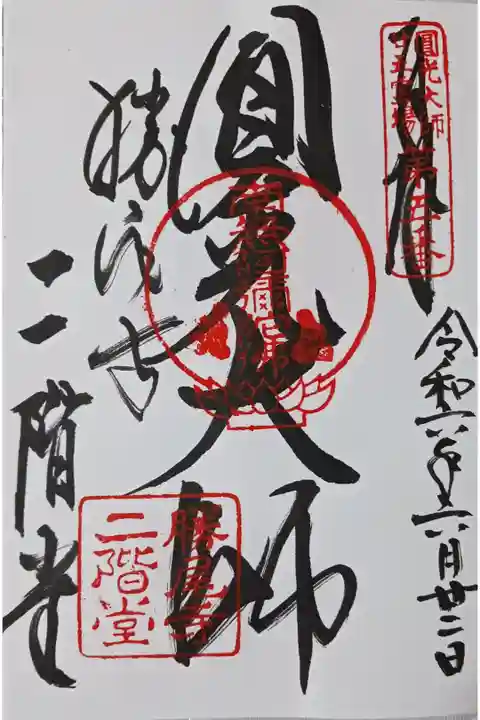 奉拝
圓光大師
廿五霊場
第五番
令和六年六月廿二日
圓光大師
南無阿弥陀佛
勝尾寺
二階堂
勝尾寺
二階堂